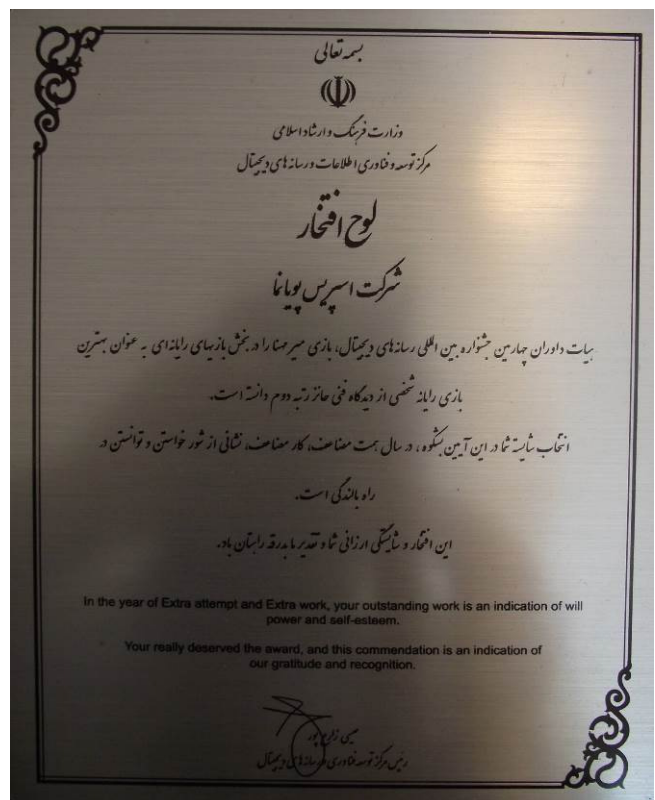 بسمه تعالی
وزارت فرهنگ و ارشاد اسلامی
مرکز توسعه و فناوری اطلاعات و رسانه های دیجیتال
لوح افتخار
شرکت اسپریس پویانما
هیات داوران چهارمین جشنواره بین المللی رسانه های دیجیتال، بازی میرمهنا را در بخش بازیهای رایانه ای به عنوان بهترین
بازی رایانه شخصی از دیدگاه فنی حائز رتبه دوم دانسته است.
انتخاب شایسته شما در این آیین بشکوه، در سال همت مضاعف، کار مضاعف، نشانی از شور خواستن و توانستن در
راه بالندگی است.
این افتخار و شایستگی ارزانی شما و تقدیر ما بدرقه راهتان باد.
In the year of Extra attempt and Extra work, your outstanding work is an indication of will
power and self-esteem.
Your really deserved the award, and this commendation is an indication of
our gratitude and recognition.
رئیس مرکز توسعه فناوری و رسانه های دیجیتال